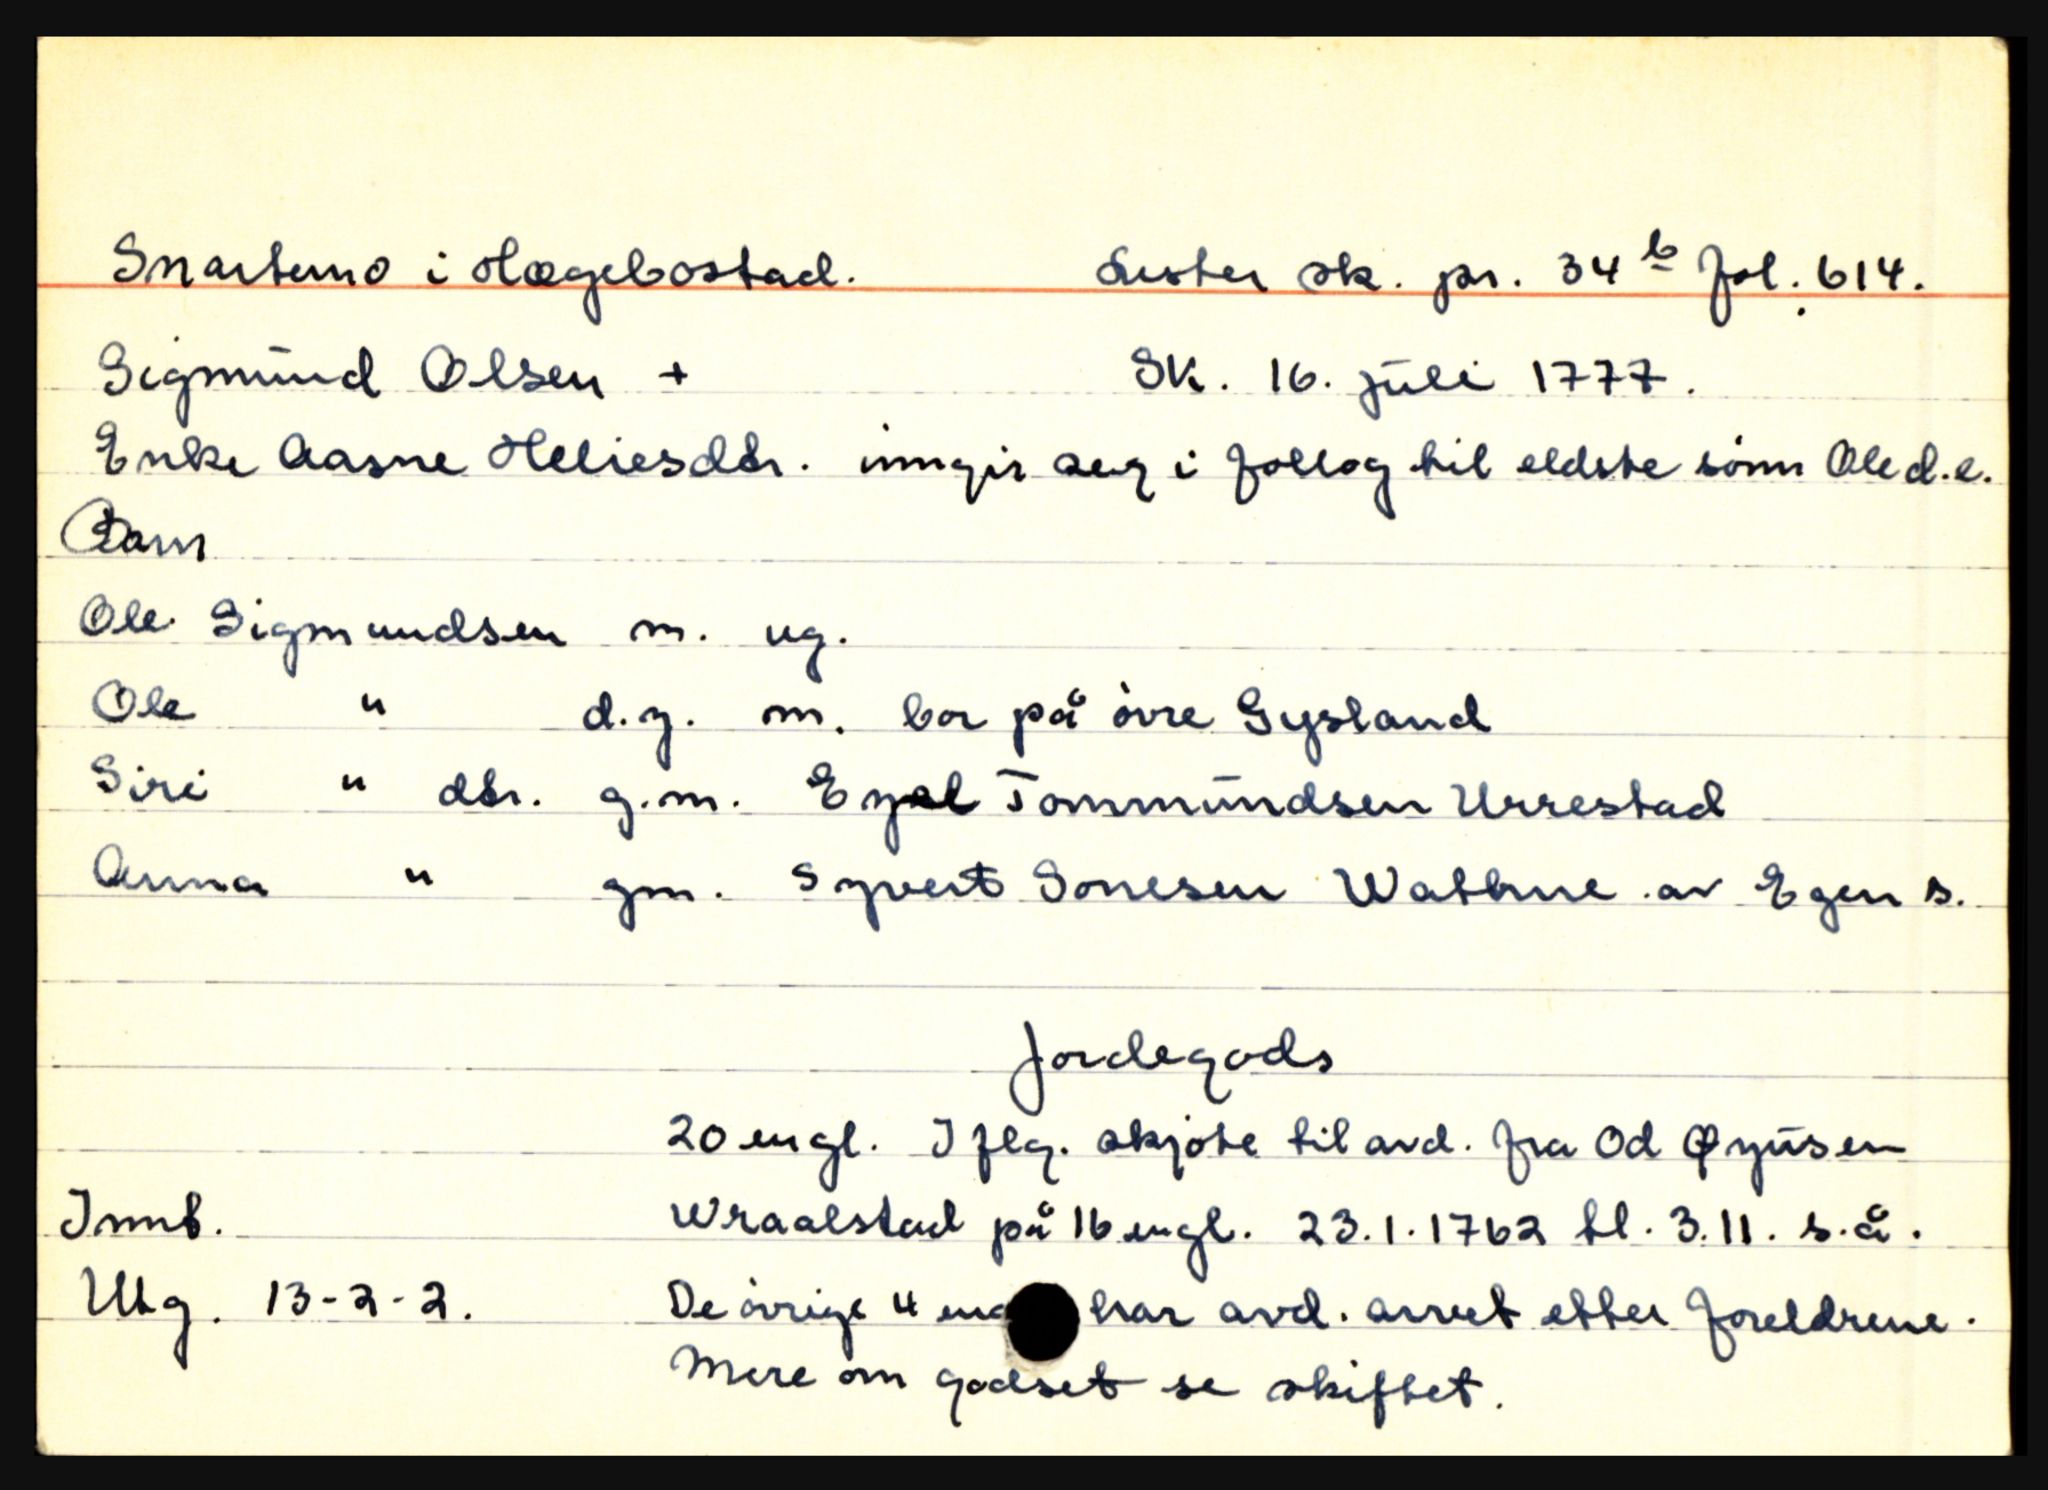 Snartemo i Hægebostad. Lister sk. pr. 34 b fol. 614.
Sigmund Olsen + Sk. 16. juli 1777.
Enke Aasne Heliesdtr. inngir seg i follog til eldste sønn Ole d.e.
Barn
Ole Sigmundsen m. ug.
Ole " d.y. m. bor på øvre Gysland
Siri " dtr. g.m. Eyel Tommundsen Urrestad
Anna " gm. Syvert Sonesen Wathne av Egen s.
Jordegods
20 engl. I flg. skjøte til avd. fra Od Øyusen
Innb. Wraalstad på 16 engl. 23.1.1762 tl. 3.11. s.å.
Utg. 13-2-2. De øvrige 4 har avd. arvet etter foreldrene.
Mere om godset se skiftet.